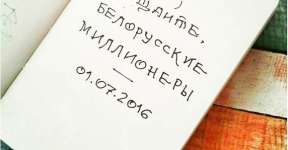 ЩАЙТЕ,
БЕЛОРУССКИЕ
МИЛЛИОНЕРЫ
—
01.07.2016